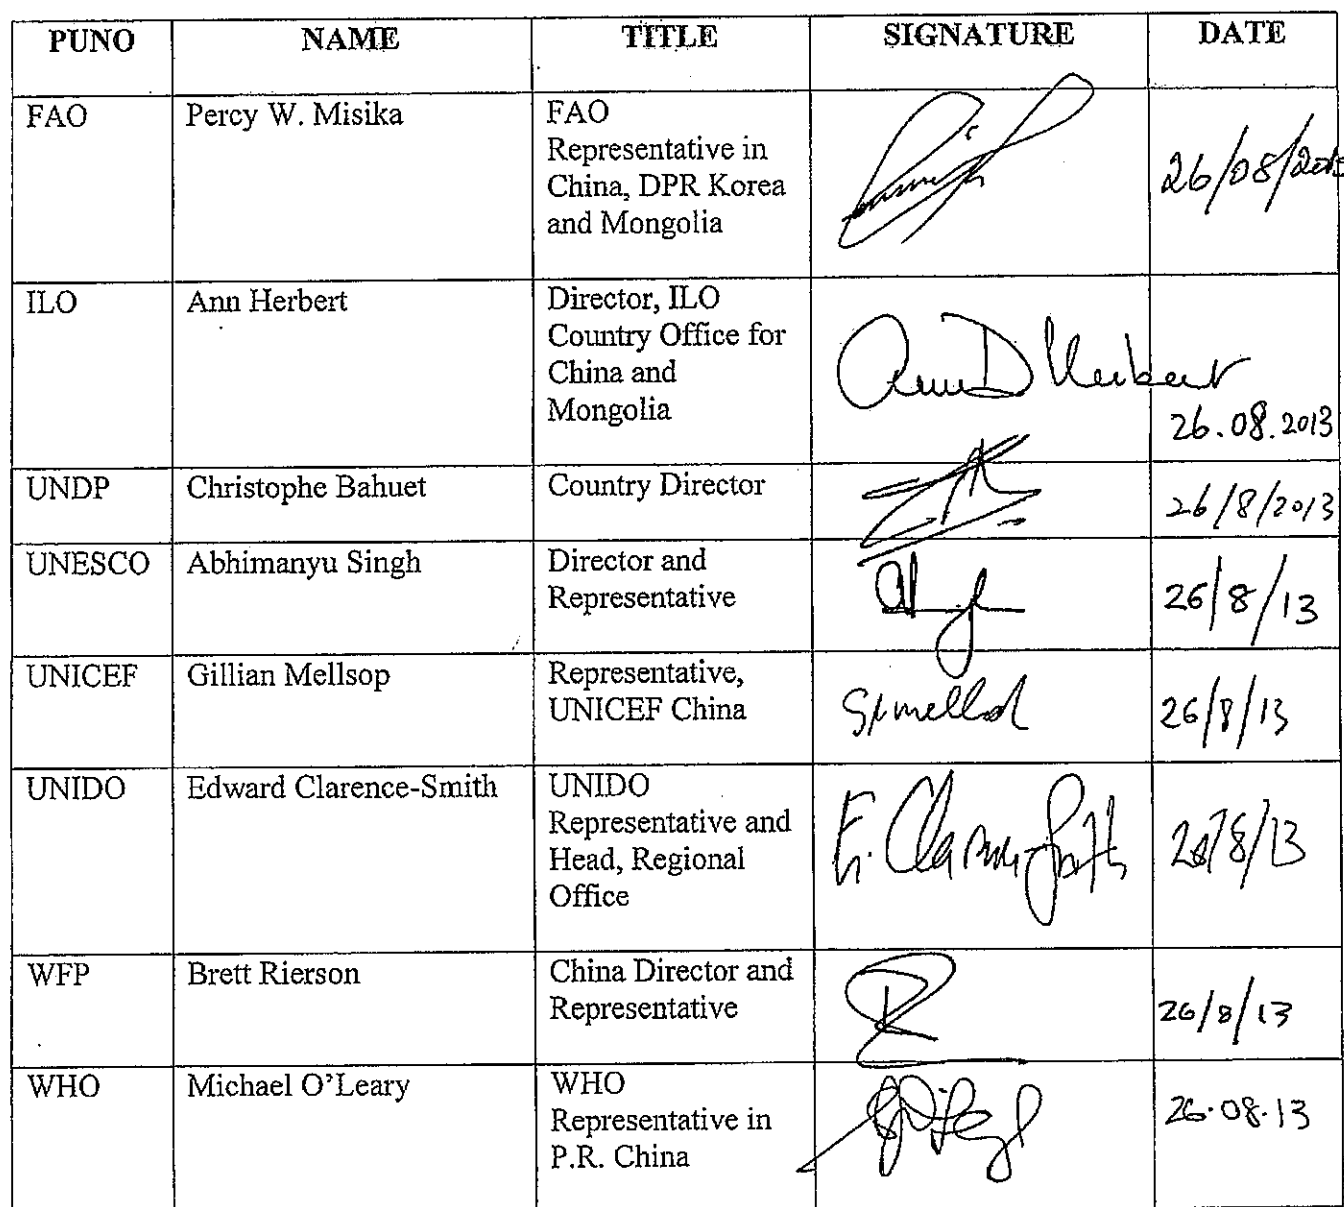 PUNO NAME TITLE SIGNATURE DATE
FAO Percy W. Misika FAO
Representative in
China, DPR Korea
and Mongolia
26/08/2013
ILO Ann Herbert Director, ILO
Country Office for
China and
Mongolia
Ann D Herbert
26.08.2013
UNDP Christophe Bahuet Country Director 26/8/2013
UNESCO Abhimanyu Singh Director and
Representative
26/8/13
UNICEF Gillian Mellsop Representative,
UNICEF China
26/8/13
UNIDO Edward Clarence-Smith UNIDO
Representative and
Head, Regional
Office
E. Clarence-Smith
WFP Brett Rierson China Director and
Representative
26/8/13
WHO Michael O'Leary WHO
Representative in
P.R. China
26.08.13